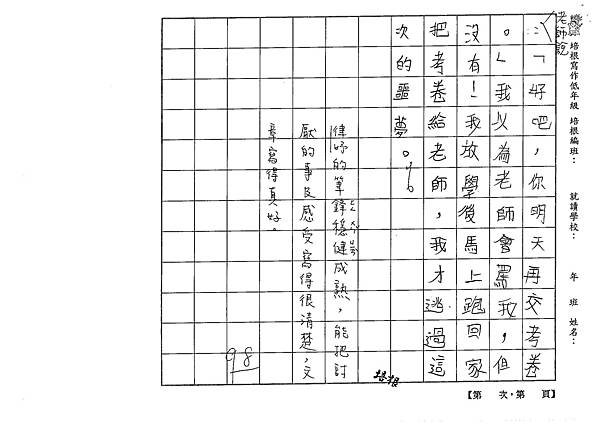 培根寫作低年級 培根編班： 就讀學校： 年 班 姓名：
老師說
：「好吧，你明天再交考卷
。」我以為老師會罵我，但
沒有！我放學後馬上跑回家
把考卷給老師，我才逃過這
次的噩夢。
的筆鋒穩健成熟，能把討
厭的事及感受寫得很清楚，文
章寫得真好。
98
培根
【第 次·第 頁】